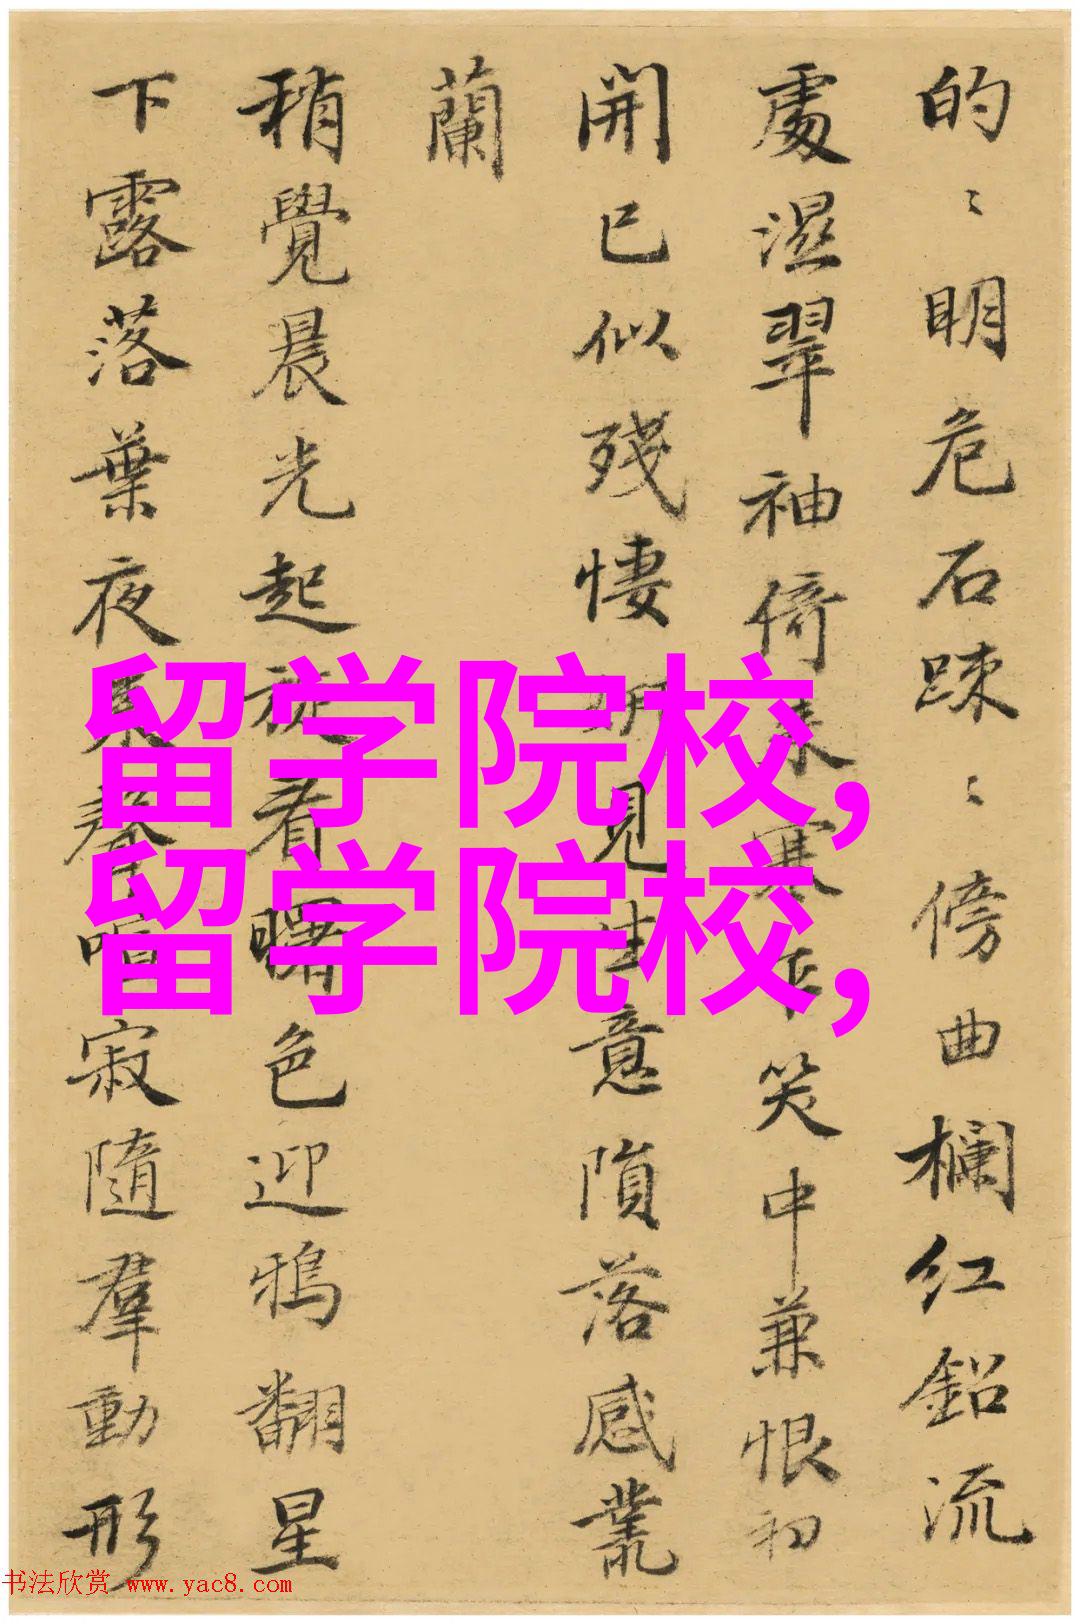 的〻明危石疎〻傍曲欄红鉛流
處濕翠袖倚来寒乍笑中兼恨初
開已似殘悽見生意隕落感叢
蘭
稍覺晨光起看曙色迎鴉翻星
下露落葉夜来聲寂隨羣動形
留学院校,
留学院校,
书法欣赏 www.yac8.com